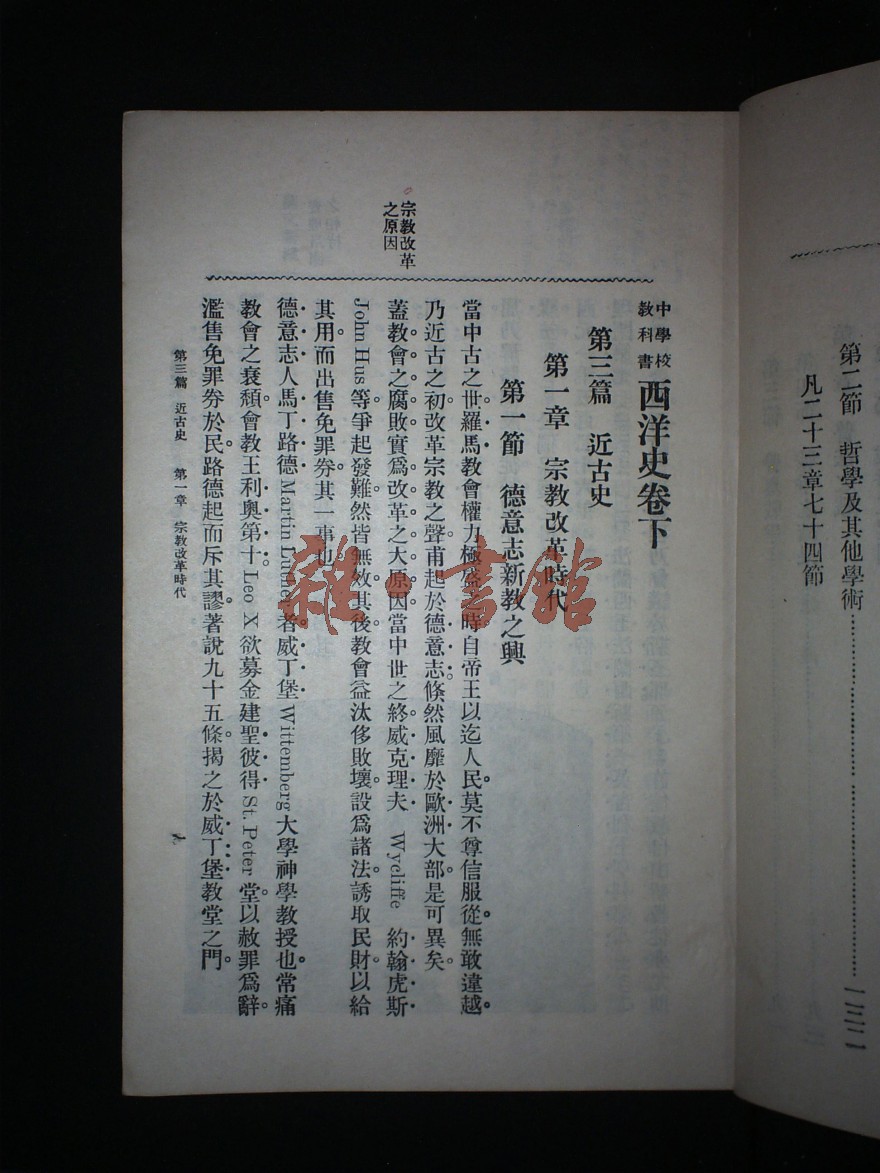 第二節　哲學及其他學術……………………………一三二
凡二十三章七十四節
中學校
教科書
西洋史卷下
第三篇　近古史
第一章　宗教改革時代
第一節　德意志新教之興
宗教改革
之原因
當中古之世羅馬教會權力極盛之時自帝王以迄人民莫不尊信服從。無敢違越。
乃近古之初改革宗教之聲甫起於德意志。倏然風靡於歐洲大部是可異矣
蓋教會之腐敗實爲改革之大原因當中世之終。威克理夫 Wycliffe 約翰虎斯
John Hus 等爭起發難然皆無效。其後教會益汰侈敗壞。設爲諸法。誘取民財以給
其用。而出售免罪券。其一事也。
德意志人馬丁路德 Martin Luther 者威丁堡 Wittemberg 大學神學教授也。常痛
教會之衰頹。會教王利奧第十 Leo X 欲募金建聖彼得 St. Peter 堂。以赦罪爲辭。
濫售免罪券於民。路德起而斥其謬。著說九十五條。揭之於威丁堡教堂之門。
第三篇　近古史　第一章　宗教改革時代
雜·書館